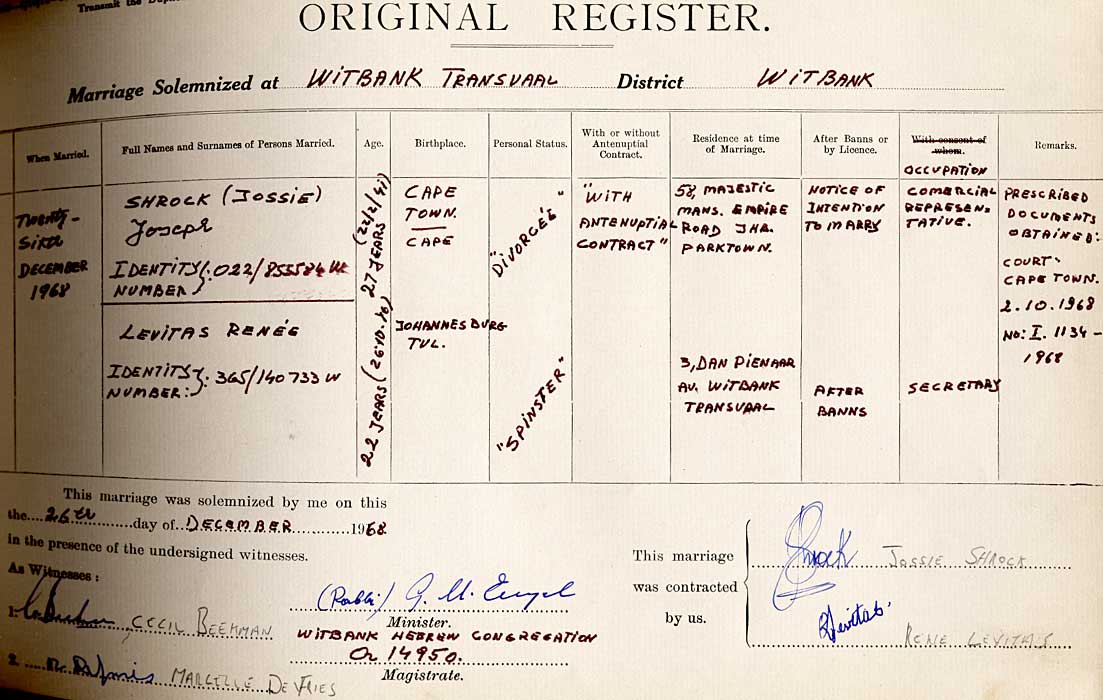 Transmit the
ORIGINAL REGISTER.
Marriage Solemnized at WITBANK TRANSVAAL District WITBANK
When Married.
Full Names and Surnames of Persons Married.
Age.
Birthplace.
Personal Status.
With or without
Antenuptial
Contract.
Residence at time
of Marriage.
After Banns or
by Licence.
With consent of
whom.
OCCUPATION
Remarks.
TWENTY-
SIXTH
DECEMBER
1968
SHROCK (JOSSIE)
Joseph
IDENTITY
NUMBER }: 022/855584 W
27 YEARS (22/2/41)
CAPE
TOWN.
CAPE
"DIVORCEÉ"
"WITH
ANTENUPTIAL
CONTRACT"
58, MAJESTIC
MANS. EMPIRE
ROAD JHB.
PARKTOWN.
NOTICE OF
INTENTION
TO MARRY
COMERCIAL
REPRESEN-
TATIVE.
PRESCRIBED
DOCUMENTS
OBTAINED:
COURT
CAPE TOWN.
2.10.1968
NO: I. 1134-
1968
LEVITAS RENÉE
IDENTITY
NUMBER: }: 365/140733 W
22 YEARS
JOHANNESBURG
TVL.
"SPINSTER"
3, DAN PIENAAR
AV. WITBANK
TRANSVAAL
AFTER
BANNS
SECRETARY
This marriage was solemnized by me on this
the 26th day of DECEMBER 1968
in the presence of the undersigned witnesses.
As Witnesses:
1. CECIL BEEKMAN
2. MARCELLE DE VRIES
(Rabbi) G. M.
Minister.
WITBANK HEBREW CONGREGATION
Or 14950.
Magistrate.
This marriage
was contracted
by us.
Shrock JOSSIE SHROCK
Levitas RENE LEVITAS